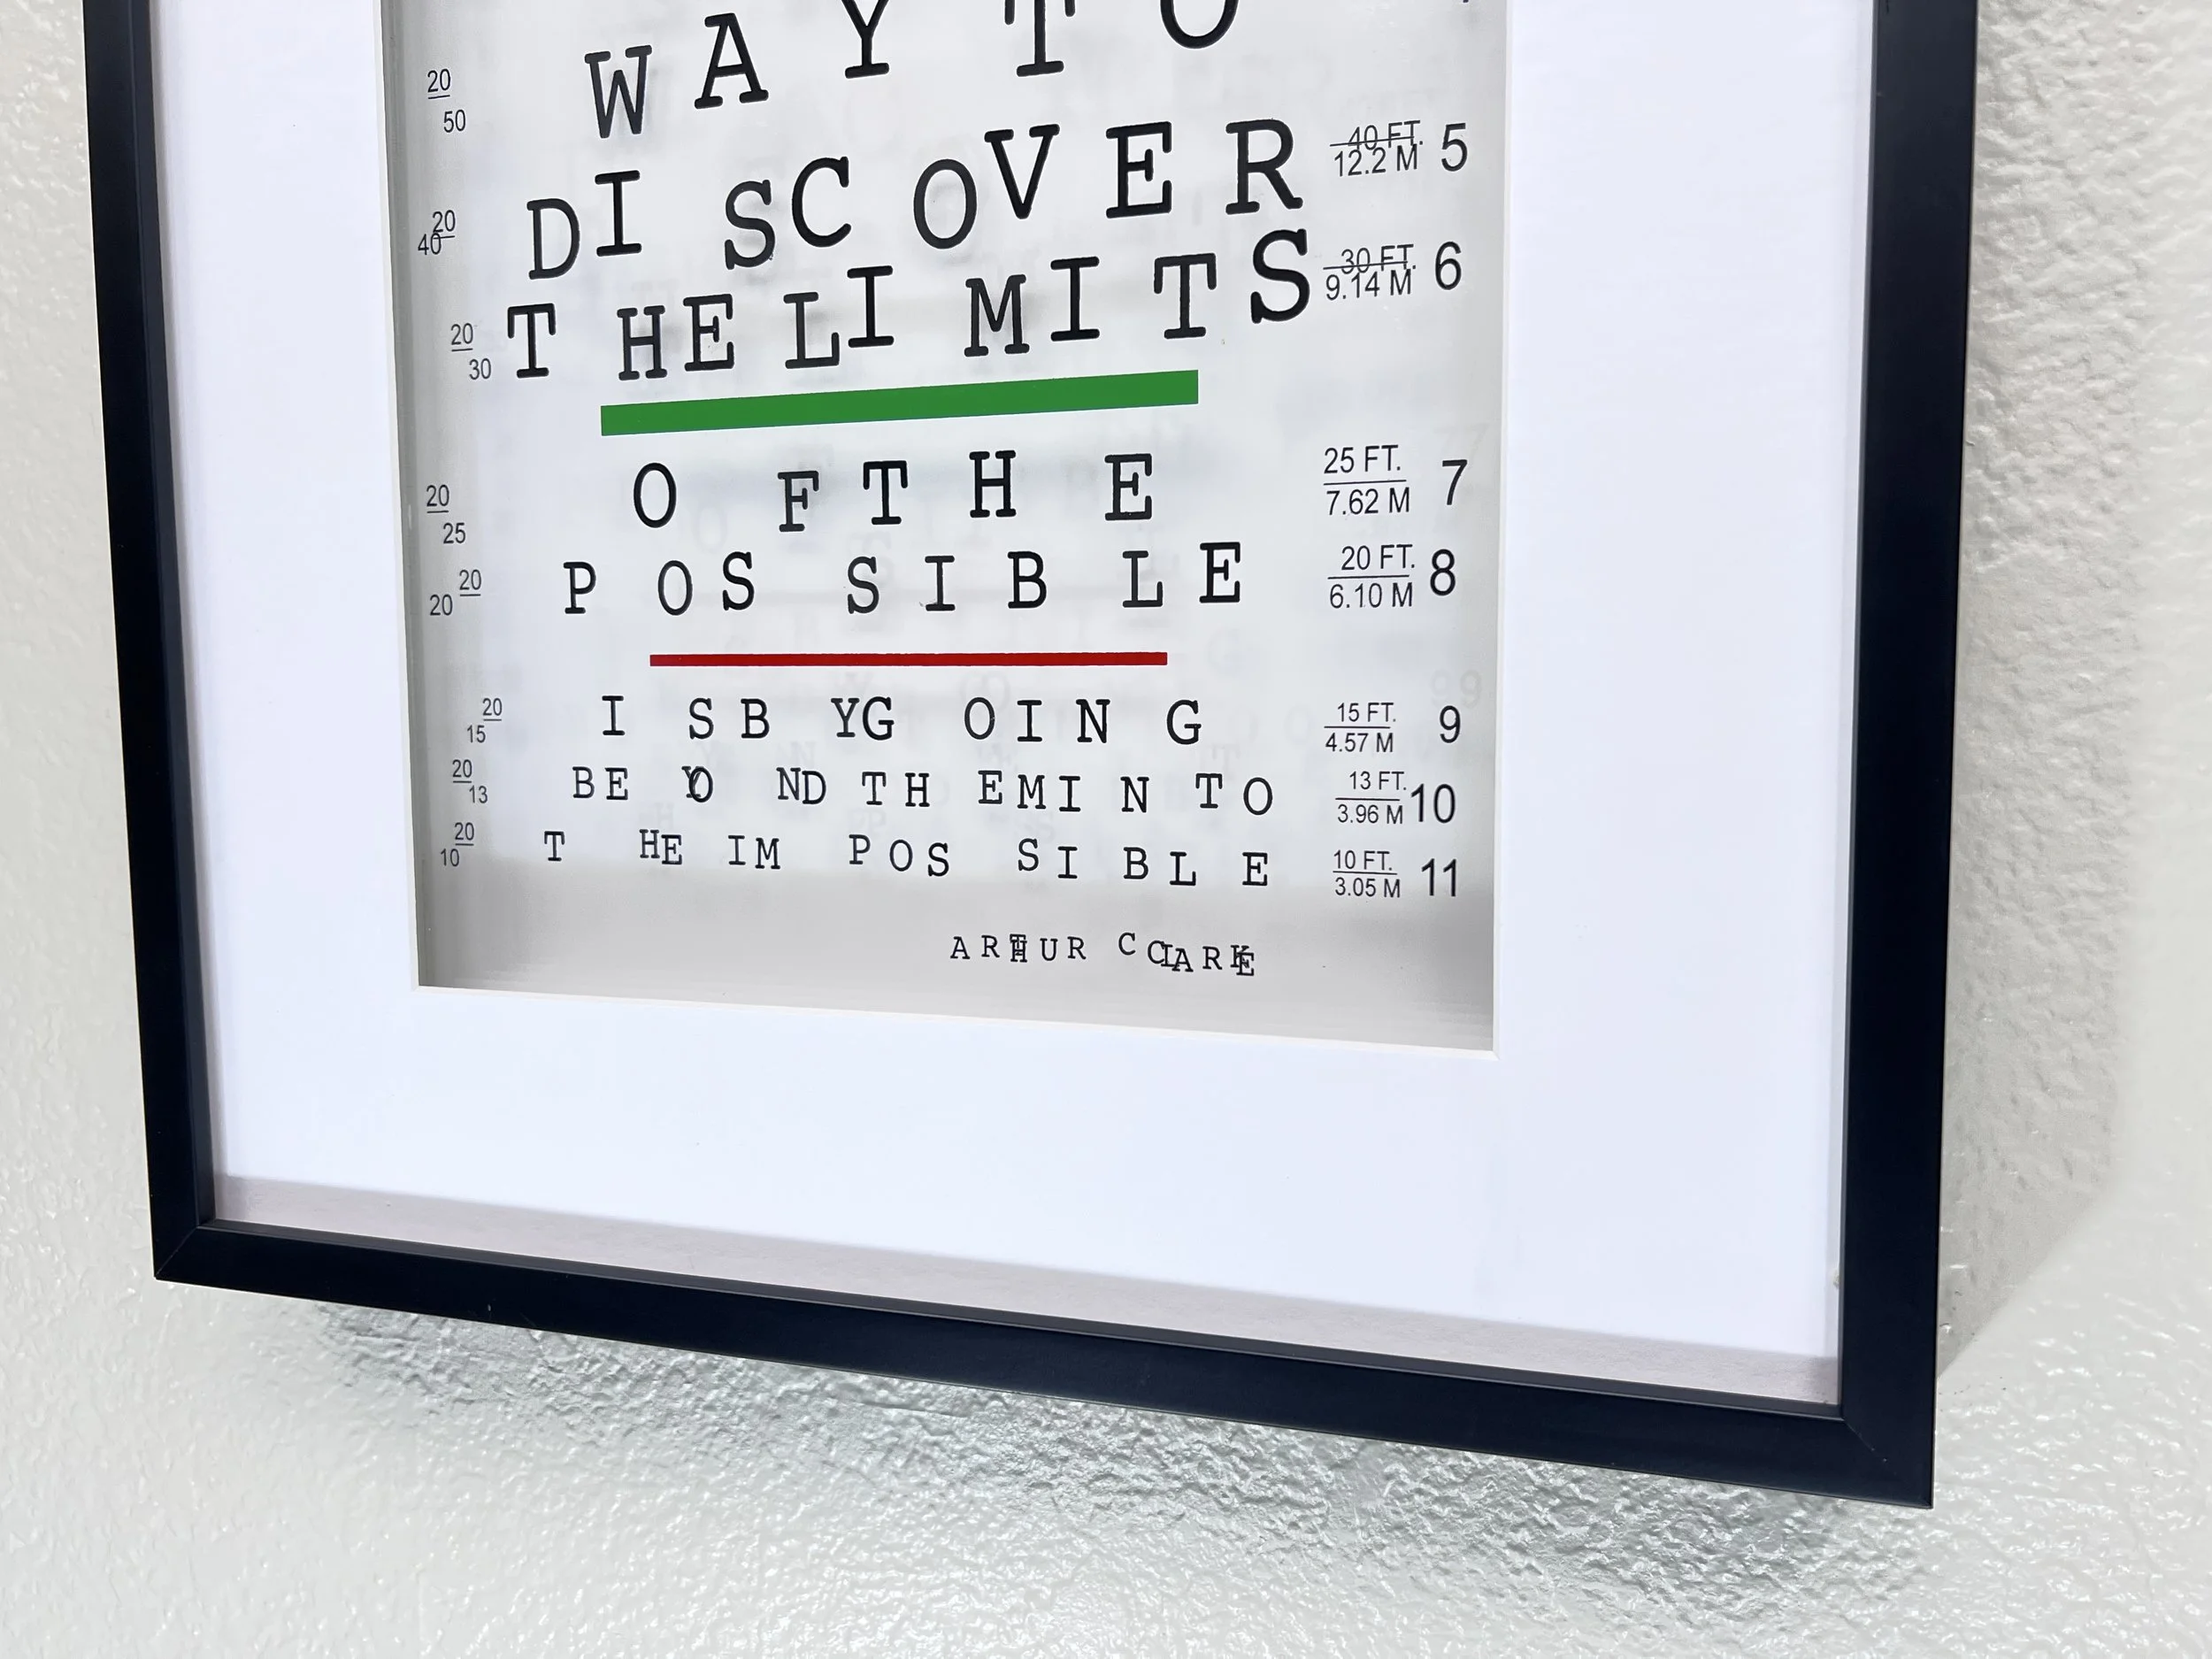 20/50 WAY TO
20/40 DISCOVER 40 FT. 12.2 M 5
20/30 THE LIMITS 30 FT. 9.14 M 6
20/25 OF THE 25 FT. 7.62 M 7
20/20 POSSIBLE 20 FT. 6.10 M 8
20/15 IS BY GOING 15 FT. 4.57 M 9
20/13 BEYOND THEM INTO 13 FT. 3.96 M 10
20/10 THE IMPOSSIBLE 10 FT. 3.05 M 11
ARTHUR C CLARKE